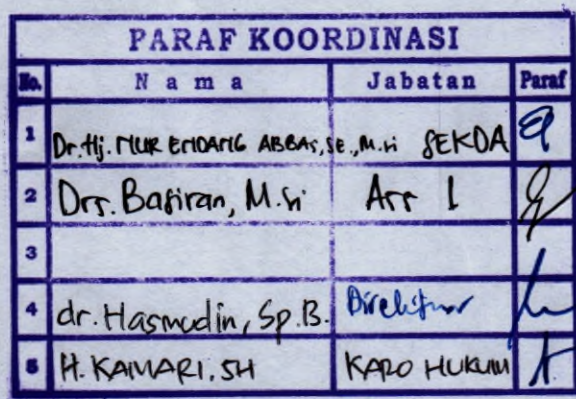 PARAF KOORDINASI
No. Nama Jabatan Paraf
1 Dr. Hj. NUR ENDANG ABBAS, SE., M.Si SEKDA
2 Drs. Basiran, M.Si Ass I
3
4 dr. Hasmudin, Sp.B. Direktur
5 H. KAMARI, SH KARO HUKUM